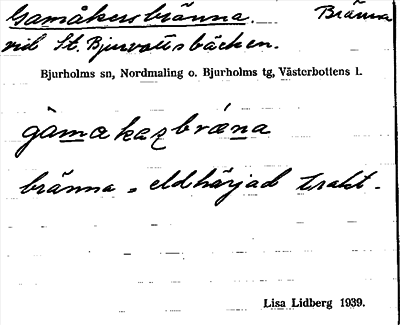 Gamåkersbränna. Bränna
vid St. Bjurvattsbäcken.
Bjurholms sn, Nordmaling o. Bjurholms tg, Västerbottens l.
gàmakazbræna
bränna = eldhärjad trakt.
Lisa Lidberg 1939.